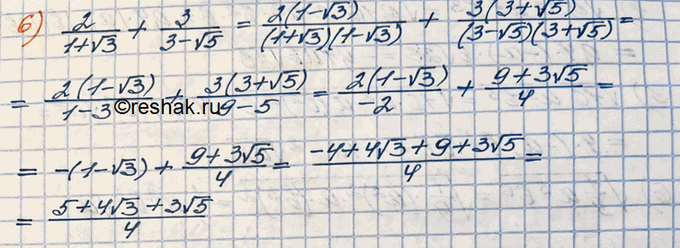 6) 2/(1+√3) + 3/(3-√5) = 2(1-√3)/((1+√3)(1-√3)) + 3(3+√5)/((3-√5)(3+√5)) =
= 2(1-√3)/(1-3) + 3(3+√5)/(9-5) = 2(1-√3)/(-2) + (9+3√5)/4 =
©reshak.ru
= -(1-√3) + (9+3√5)/4 = (-4+4√3+9+3√5)/4 =
= (5+4√3+3√5)/4